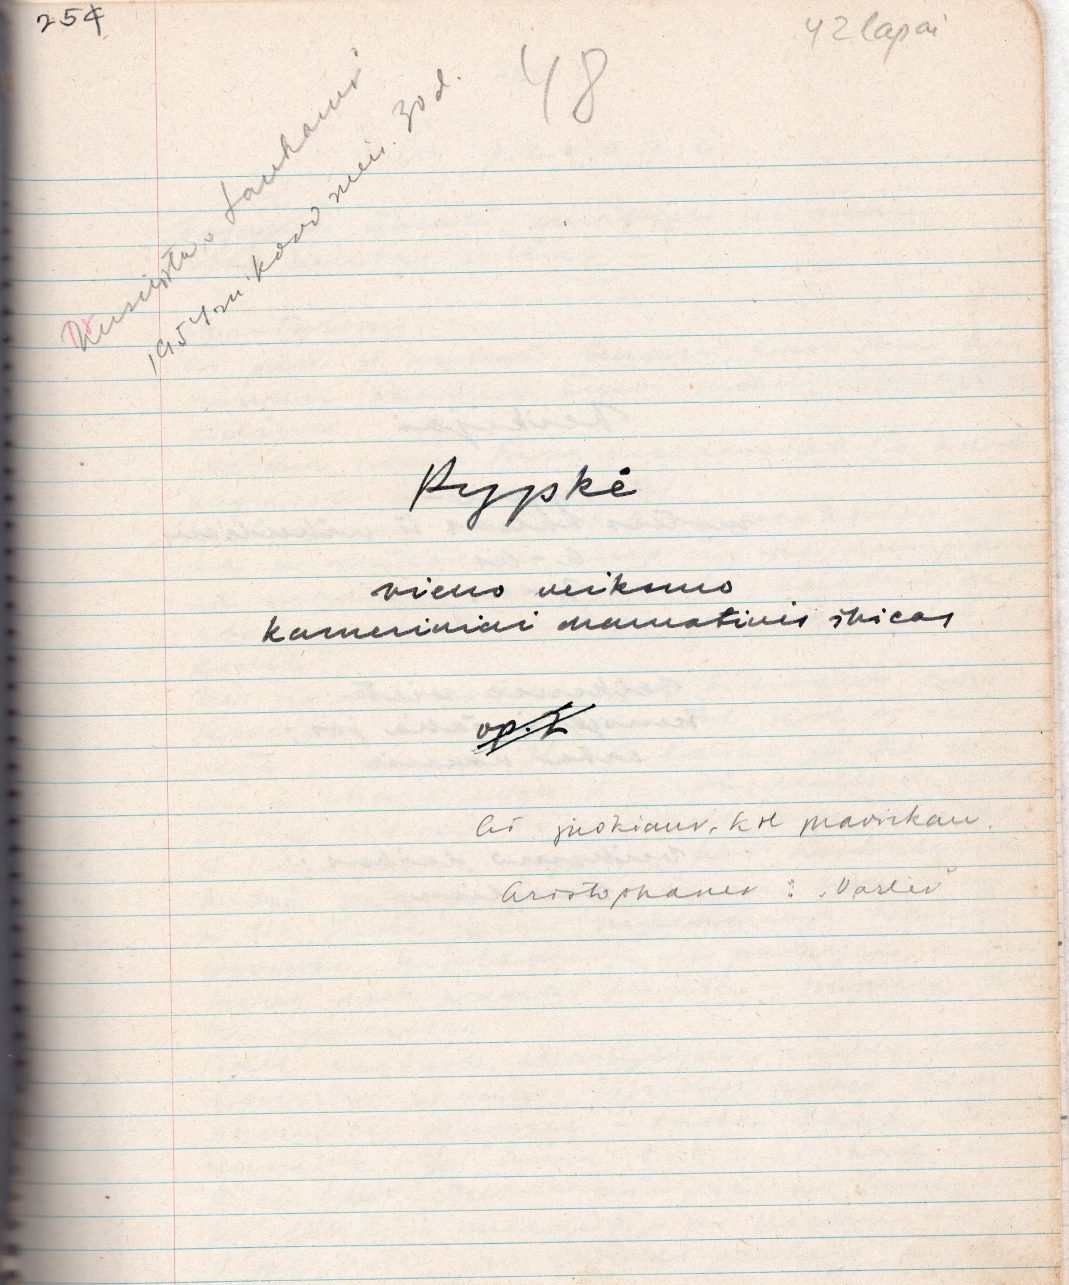 254
42 lapai
48
Nusiųsta Lankams
1954 m. kovo mėn. 30 d.
Rypskė
vieno veiksmo
kameriniai dramatinis špicas
op. I
Aš juokiaus, kol
Aristophanes : "Varlės"